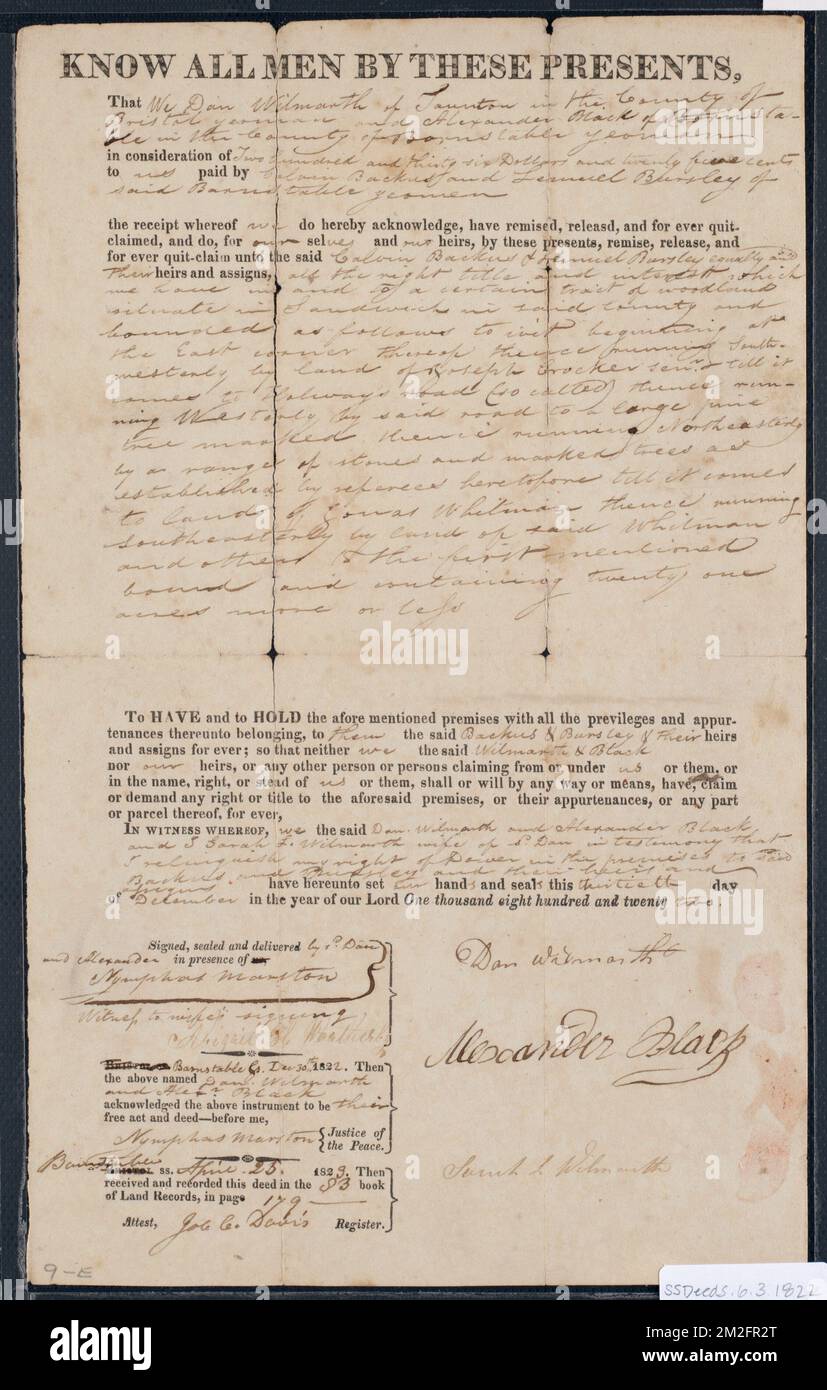 KNOW ALL MEN BY THESE PRESENTS,
That We Dan Wilmarth of Taunton in the County of
Bristol yeoman and Alexander Black of Barnsta-
ble in the County of Barnstable yeoman
in consideration of Two hundred and thirty six Dollars and twenty five cents
to us paid by Calvin Backus and Lemuel Bursley of
said Barnstable yeomen
the receipt whereof we do hereby acknowledge, have remised, releasd, and for ever quit-
claimed, and do, for our selves and our heirs, by these presents, remise, release, and
for ever quit-claim unto the said Calvin Backus & Lemuel Bursley equally and
their heirs and assigns, all the right title and interest which
we have in and to a certain tract of woodland
situate in Sandwich in said County and
bounded as follows to wit beginning at
the East corner thereof thence running South-
westerly by land of Joseph Crocker senr. till it
comes to Holway's road (so called) thence run-
ning Westerly by said road to a large pine
tree marked thence running Northeasterly
by a range of stones and marked trees as
established by referees heretofore till it comes
to land of Jonas Whitman thence running
Southeasterly by land of said Whitman
and others to the first mentioned
bound and containing twenty one
acres more or less
To HAVE and to HOLD the afore mentioned premises with all the previleges and appur-
tenances thereunto belonging, to them the said Backus & Bursley & their heirs
and assigns for ever; so that neither we the said Wilmarth & Black
nor our heirs, or any other person or persons claiming from or under us or them, or
in the name, right, or stead of us or them, shall or will by any way or means, have, claim
or demand any right or title to the aforesaid premises, or their appurtenances, or any part
or parcel thereof, for ever,
IN WITNESS WHEREOF, we the said Dan Wilmarth and Alexander Black
and I Sarah L. Wilmarth wife of sd. Dan in testimony that
I relinquish my right of Dower in the premises to said
Backus and Bursley and their heirs and
assigns have hereunto set our hands and seals this thirtieth day
of December in the year of our Lord One thousand eight hundred and twenty two.
Signed, sealed and delivered by sd. Dan
and Alexander in presence of
Nymphas Marston
Witness to wife's signing
Abigail
Barnstable Ss. Dec 30th 1822. Then
the above named Dan Wilmarth
and Alexr. Black
acknowledged the above instrument to be their
free act and deed—before me,
Nymphas Marston { Justice of
the Peace.
Barnstable ss. April 25. 1823. Then
received and recorded this deed in the 83 book
of Land Records, in page 179
Attest, Job C. Davis Register.
Dan Wilmarth
Alexander Black
Sarah L Wilmarth
9-E
SSDeeds.6.3 1822
alamy
Image ID: 2M2FR2T
www.alamy.com